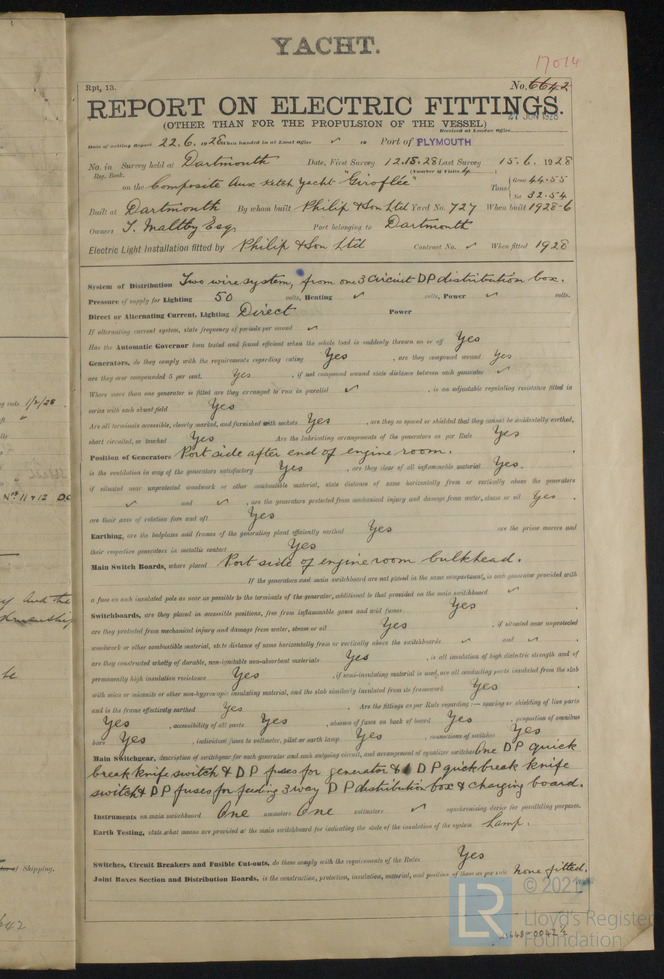 YACHT.
17014
Rpt. 13.
No. 6642
REPORT ON ELECTRIC FITTINGS.
(OTHER THAN FOR THE PROPULSION OF THE VESSEL)
Received at London Office 27 JUN 1928
Date of writing Report 22.6.1928 When handed in at Local Office ✓ 19 Port of PLYMOUTH
No. in Survey held at Dartmouth Date, First Survey 12.15.28 Last Survey 15.6.1928
Reg. Book. (Number of Visits 4)
on the Composite Aux Ketch Yacht "Giroflée" Tons Gross 44.55 Net 32.54
Built at Dartmouth By whom built Philip & Son Ltd Yard No. 727 When built 1928-6
Owners T. Maltby Esq. Port belonging to Dartmouth
Electric Light Installation fitted by Philip & Son Ltd Contract No. ✓ When fitted 1928
System of Distribution Two wire system, from one 3 Circuit DP distribution box.
Pressure of supply for Lighting 50 volts, Heating ✓ volts, Power ✓ volts.
Direct or Alternating Current, Lighting Direct Power
If alternating current system, state frequency of periods per second ✓
Has the Automatic Governor been tested and found efficient when the whole load is suddenly thrown on or off Yes
Generators, do they comply with the requirements regarding rating Yes, are they compound wound Yes
are they over compounded 5 per cent. Yes, if not compound wound state distance between each generator ✓
Where more than one generator is fitted are they arranged to run in parallel ✓, is an adjustable regulating resistance fitted in
series with each shunt field Yes
Are all terminals accessible, clearly marked, and furnished with sockets Yes, are they so spaced or shielded that they cannot be accidentally earthed,
short circuited, or touched Yes Are the lubricating arrangements of the generators as per Rule Yes
Position of Generators Port side after end of engine room.
is the ventilation in way of the generators satisfactory Yes, are they clear of all inflammable material Yes
if situated near unprotected woodwork or other combustible material, state distance of same horizontally from or vertically above the generators
✓ and ✓, are the generators protected from mechanical injury and damage from water, steam or oil Yes
are their axes of rotation fore and aft Yes
Earthing, are the bedplates and frames of the generating plant efficiently earthed Yes are the prime movers and
their respective generators in metallic contact Yes
Main Switch Boards, where placed Port side of engine room bulkhead.
If the generators and main switchboard are not placed in the same compartment, is each generator provided with
a fuse on each insulated pole as near as possible to the terminals of the generator, additional to that provided on the main switchboard ✓
Switchboards, are they placed in accessible positions, free from inflammable gases and acid fumes Yes
are they protected from mechanical injury and damage from water, steam or oil Yes, if situated near unprotected
woodwork or other combustible material, state distance of same horizontally from or vertically above the switchboards ✓ and ✓
are they constructed wholly of durable, non-ignitable non-absorbent materials Yes, is all insulation of high dielectric strength and of
permanently high insulation resistance Yes, if semi-insulating material is used, are all conducting parts insulated from the slab
with mica or micanite or other non-hygroscopic insulating material, and the slab similarly insulated from its framework Yes
and is the frame effectively earthed Yes Are the fittings as per Rule regarding:— spacing or shielding of live parts
Yes, accessibility of all parts Yes, absence of fuses on back of board Yes, proportion of omnibus
bars Yes, individual fuses to voltmeter, pilot or earth lamp Yes, connections of switches Yes
Main Switchgear, description of switchgear for each generator and each outgoing circuit, and arrangement of equalizer switches One DP quick
break knife switch & DP fuses for generator & DP quick break knife
switch & DP fuses for feeding 3 way DP distribution box & charging board.
Instruments on main switchboard One ammeters One voltmeters ✓ synchronising device for paralleling purposes.
Earth Testing, state what means are provided at the main switchboard for indicating the state of the insulation of the system Lamp.
Switches, Circuit Breakers and Fusible Cut-outs, do these comply with the requirements of the Rules Yes
Joint Boxes Section and Distribution Boards, is the construction, protection, insulation, material, and position of these as per rule none fitted.
LR
© 2021
Lloyd's Register
Foundation